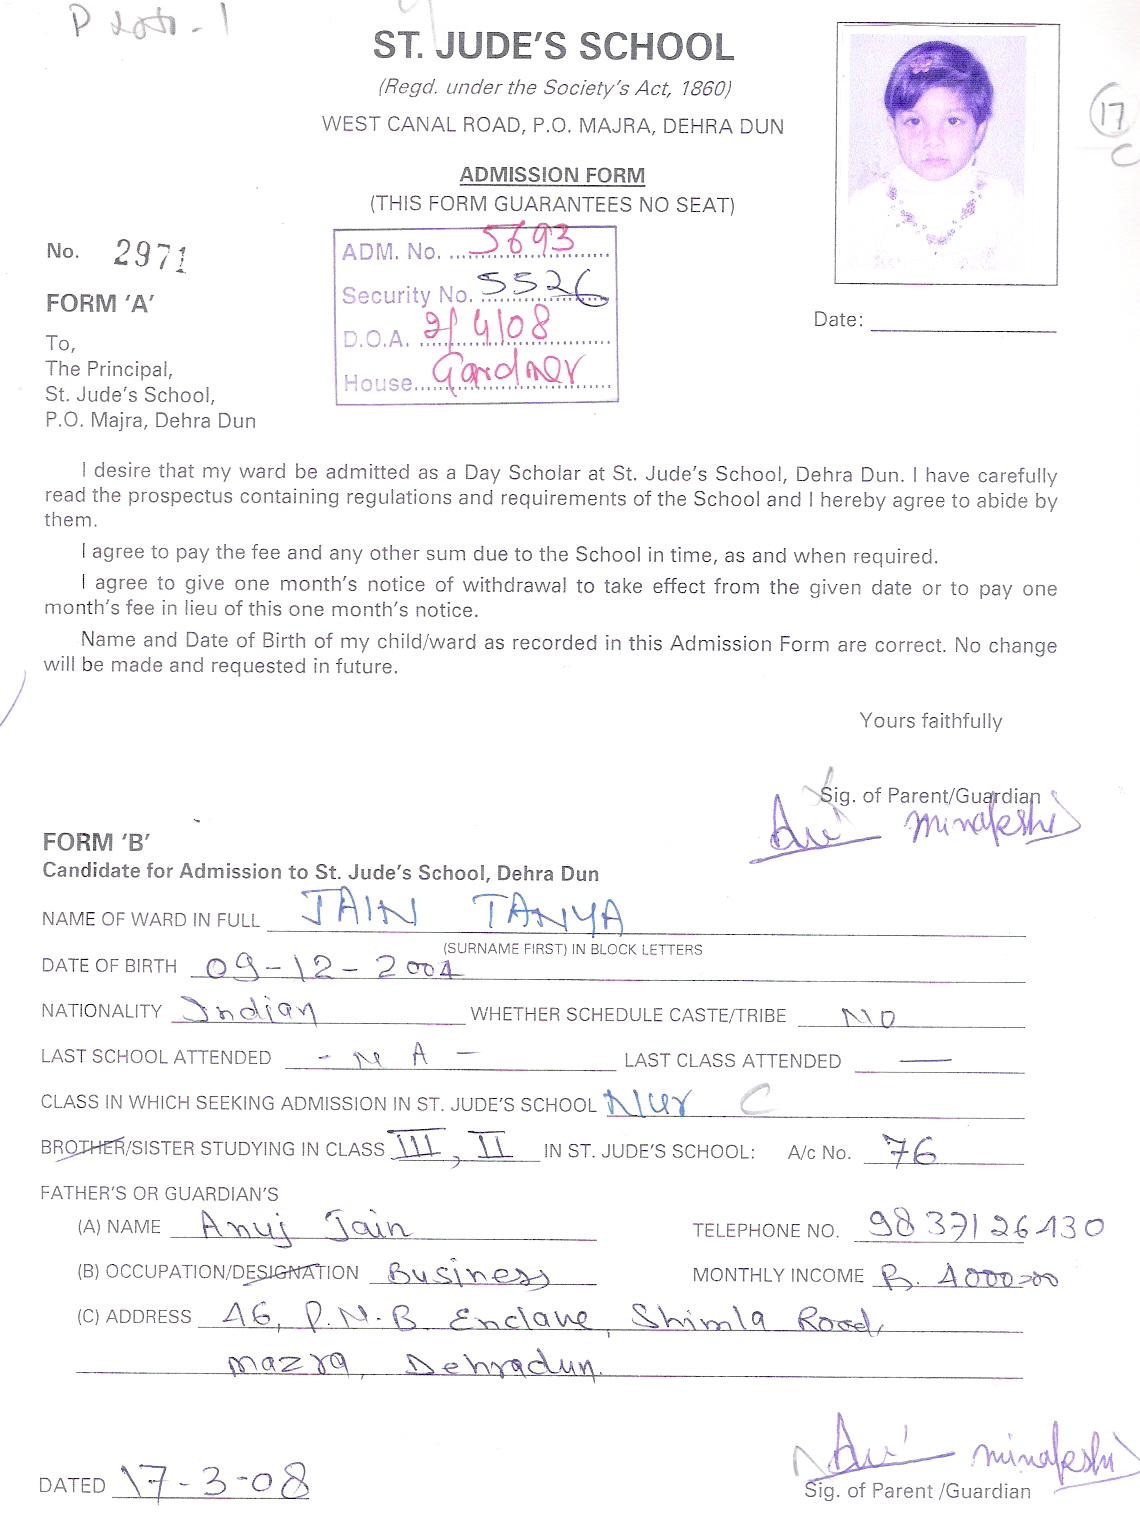 ST. JUDE'S SCHOOL
(Regd. under the Society's Act, 1860)
WEST CANAL ROAD, P.O. MAJRA, DEHRA DUN
17
C
ADMISSION FORM
(THIS FORM GUARANTEES NO SEAT)
No. 2971
ADM. No. 5693
Security No. 5526
D.O.A. 2/4/08
House Gardner
FORM 'A'
Date:
To,
The Principal,
St. Jude's School,
P.O. Majra, Dehra Dun
I desire that my ward be admitted as a Day Scholar at St. Jude's School, Dehra Dun. I have carefully
read the prospectus containing regulations and requirements of the School and I hereby agree to abide by
them.
I agree to pay the fee and any other sum due to the School in time, as and when required.
I agree to give one month's notice of withdrawal to take effect from the given date or to pay one
month's fee in lieu of this one month's notice.
Name and Date of Birth of my child/ward as recorded in this Admission Form are correct. No change
will be made and requested in future.
Yours faithfully
Sig. of Parent/Guardian
Minakshi
FORM 'B'
Candidate for Admission to St. Jude's School, Dehra Dun
NAME OF WARD IN FULL JAIN TANYA
(SURNAME FIRST) IN BLOCK LETTERS
DATE OF BIRTH 09-12-2004
NATIONALITY Indian WHETHER SCHEDULE CASTE/TRIBE NO
LAST SCHOOL ATTENDED - NA - LAST CLASS ATTENDED —
CLASS IN WHICH SEEKING ADMISSION IN ST. JUDE'S SCHOOL Nur C
BROTHER/SISTER STUDYING IN CLASS III, II IN ST. JUDE'S SCHOOL: A/c No. 76
FATHER'S OR GUARDIAN'S
(A) NAME Anuj Jain TELEPHONE NO.
(B) OCCUPATION/DESIGNATION Business MONTHLY INCOME
(C) ADDRESS 46, P.N.B Enclave, Shimla Road,
Mazra, Dehradun.
Minakshi
DATED 17-3-08
Sig. of Parent /Guardian